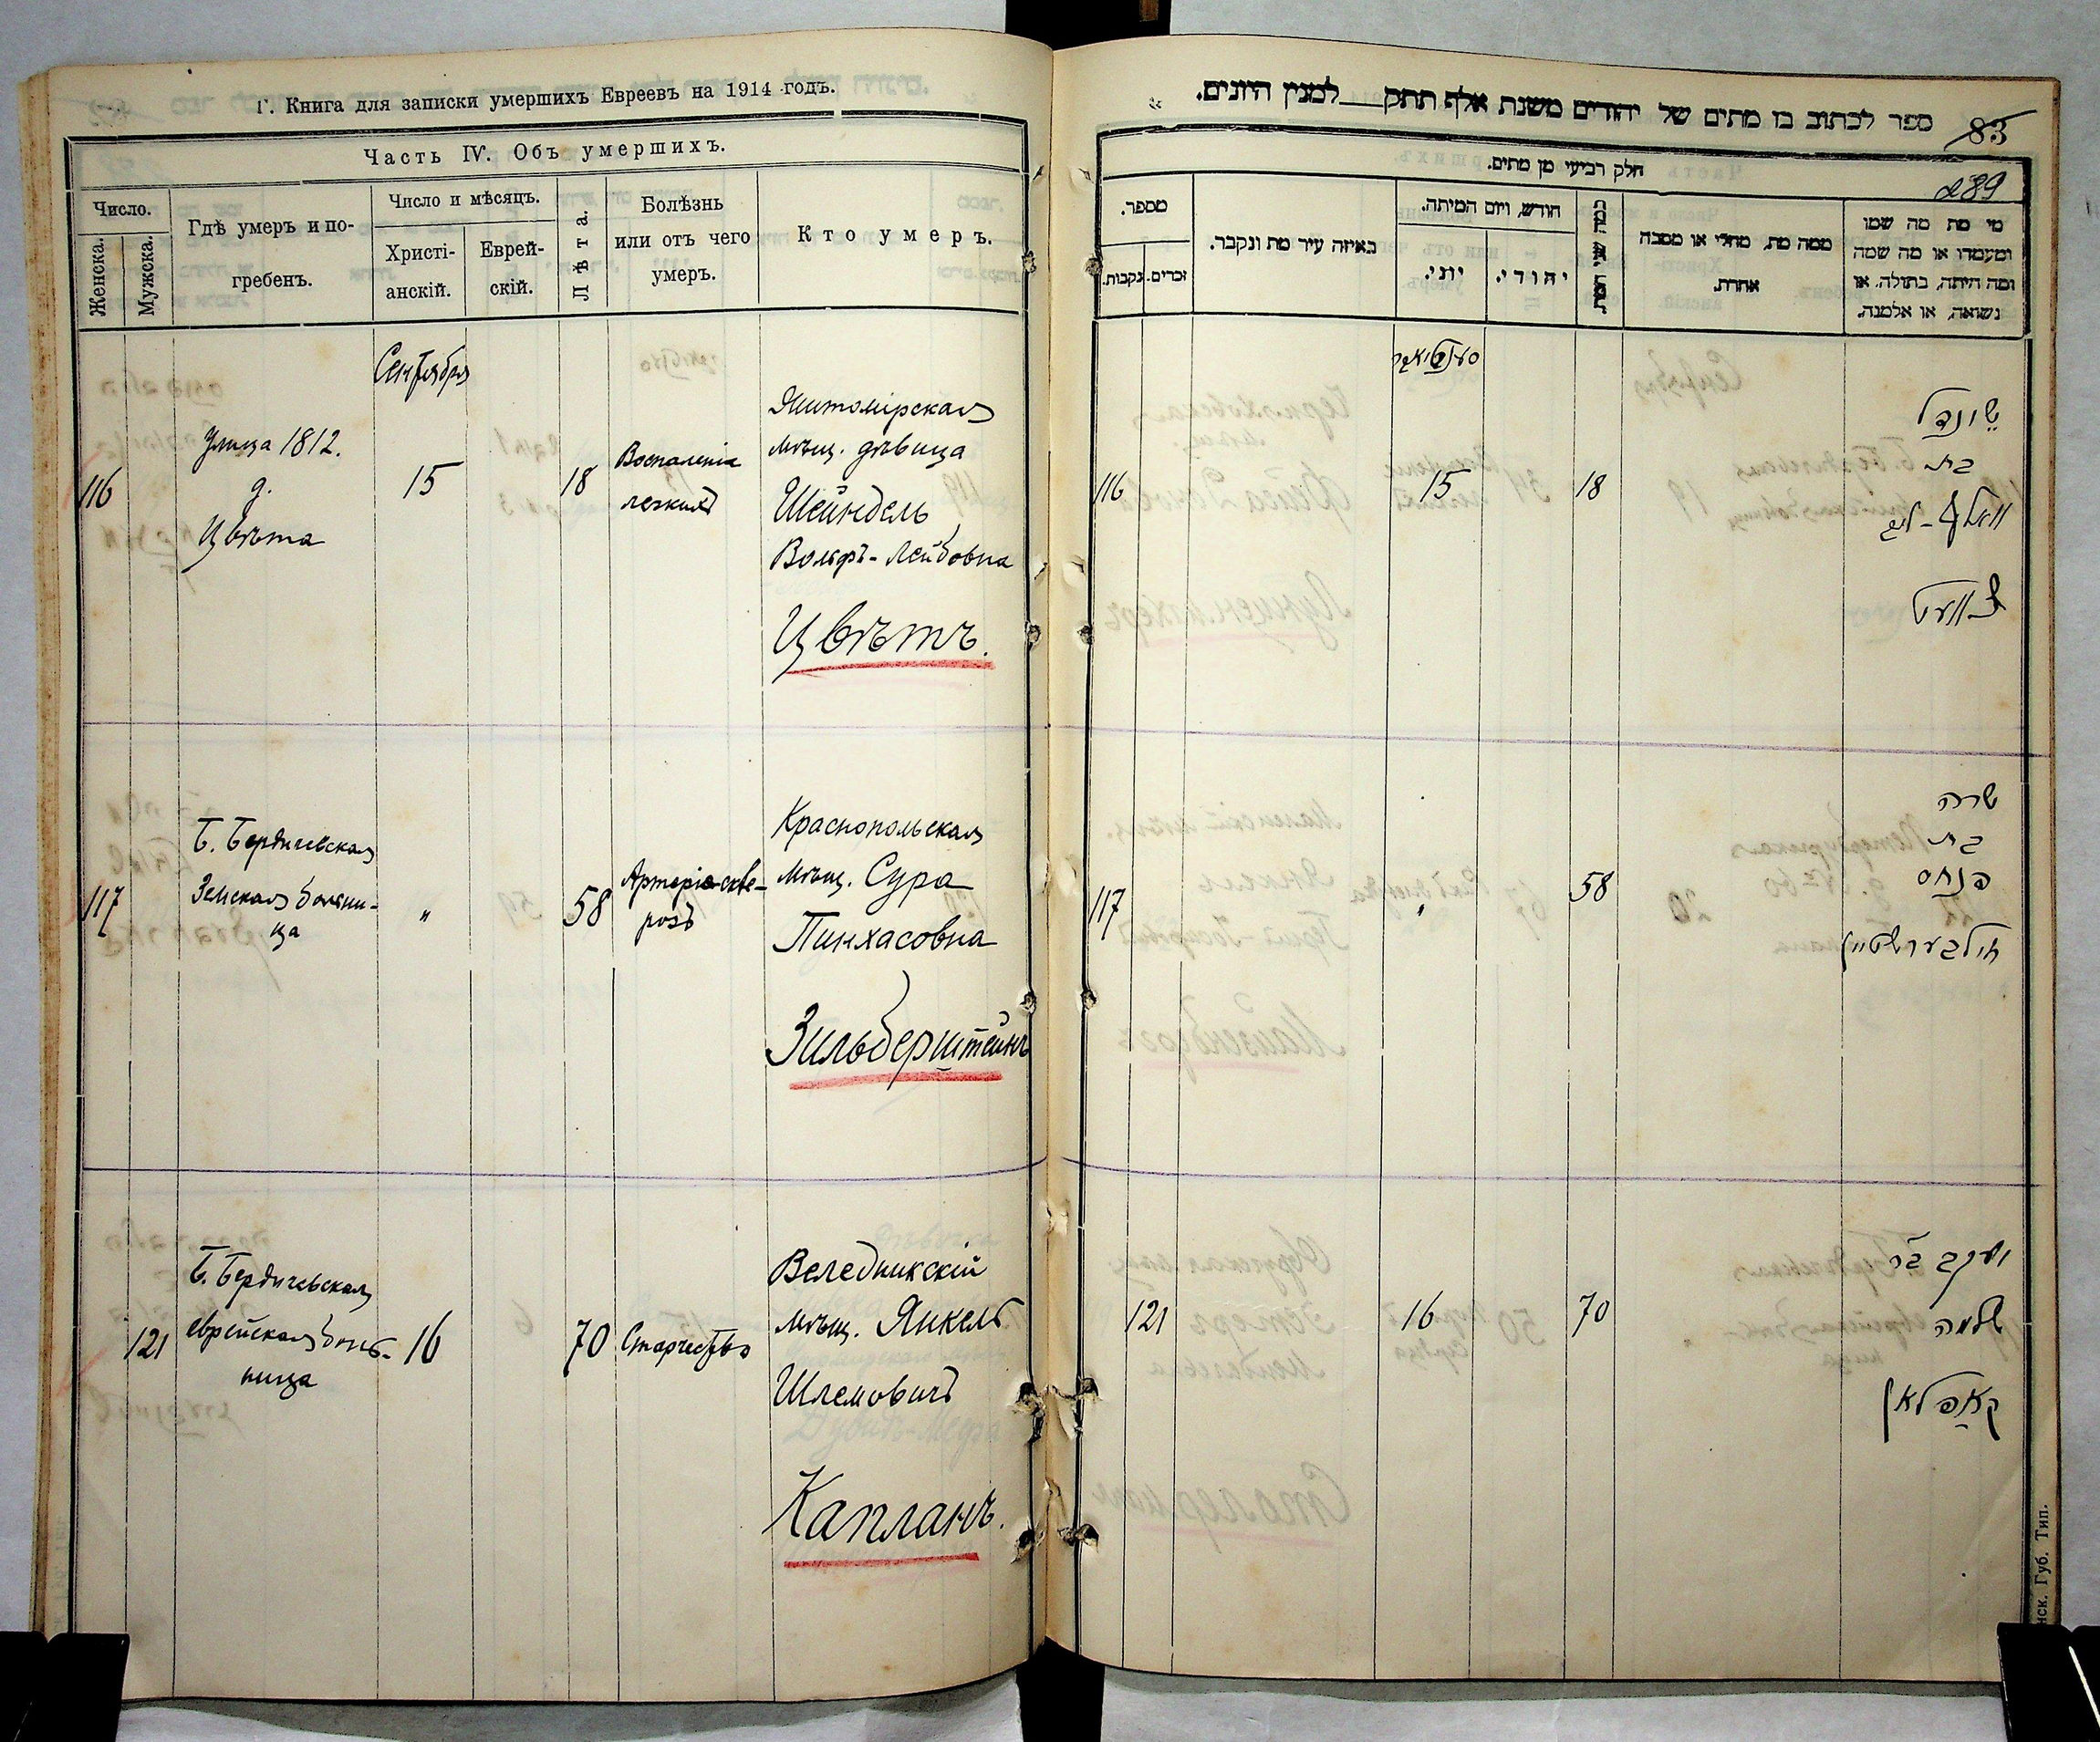 Г. Книга для записки умершихъ Евреевъ на 1914 годъ.
Часть IV. Объ умершихъ.
Число.
Женска.
Мужска.
Гдѣ умеръ и по-
гребенъ.
Число и мѣсяцъ.
Христі-
анскій.
Еврей-
скій.
Лѣта.
Болѣзнь
или отъ чего
умеръ.
Кто умеръ.
Сентября
116
Улица 1812.
д.
Цвѣта
15
18
Воспаленіе
легкихъ
Житомірская
мѣщ. дѣвица
Шейндель
Вольфъ-Лейбовна
Цвѣтъ.
117
Б. Бердичевская
Земская больни-
ца
"
58
Артеріоскле-
розъ
Краснопольская
мѣщ. Сура
Пинхасовна
Зильберштейнъ
121
Б. Бердичевская
еврейская боль-
ница
16
70
Старчество
Веледникскій
мѣщ. Янкель
Шлемовичъ
Капланъ.
ספר לכתוב בו מתים של יהודים משנת אלף תתק למנין היונים.
83
289
חלק רביעי מן מתים.
מספר.
נקבות.
זכרים.
באיזה עיר מת ונקבר.
חודש, ויום המיתה.
יוני.
יהודי.
כמה שני המת.
ממה מת, מחלי או מסבה
אחרת.
מי מת מה שמו
ומעמדו או מה שמה
ומה היתה, בתולה, או
נשואה, או אלמנה.
סענטיאבר
116
15
18
שיינדל
בת
וואלף-ליב
צוועט
117
"
58
שרה
בת
פנחס
זילבערשטיין
121
16
70
יעקב בר
שלמה
קאפלאן
нск. Губ. Тип.